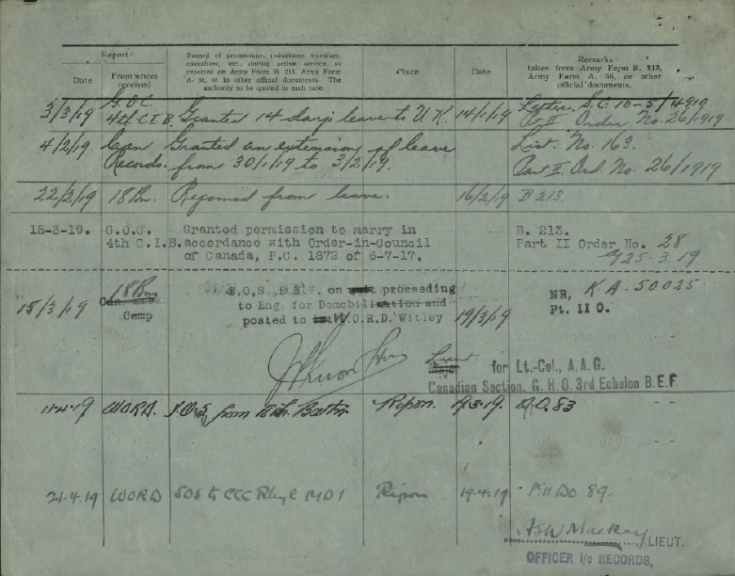 Report
Record of promotions, reductions, transfers,
casualties, etc., during active service, as
reported on Army Form B. 213, Army Form
A. 36, or in other official documents. The
authority to be quoted in each case.
Place
Date
Remarks
taken from Army Form B. 213,
Army Form A. 36, or other
official documents.
Date
From whom
received
3/3/19 G.O.C. 4th C.I.B. Granted 14 days leave to U.K. 14/1/19 Letter S.C. 10-5/4919
Pt II Order No. 26/1919
4/2/19 Can Records. Granted an extension of leave
from 30/1/19 to 3/2/19.
List. No. 163.
Part II Ord. No. 26/1919
22/2/19 18 Bn. Rejoined from leave. 16/2/19 B 213.
15-3-19. G.O.C. Granted permission to marry in B. 213.
4th C.I.B. accordance with Order-in-Council Part II Order No. 28
of Canada, P.C. 1872 of 6-7-17. 25-3-19
15/3/19 18 Bn
Camp
S.O.S. on proceeding
to Eng. for Demobilization and
posted to W.O.R.D. Witley
19/3/19
NR, KA. 50025
Pt. II O.
Lieut for Lt.-Col., A.A.G.
Canadian Section, G.H.Q. 3rd Echelon B.E.F.
WORD. T.O.S. from Ripon. D.O. 83
21.4.19 WORD SOS to CCC Rhyl MD1 Ripon 19.4.19 PII DO 89.
LIEUT.
OFFICER i/c RECORDS,